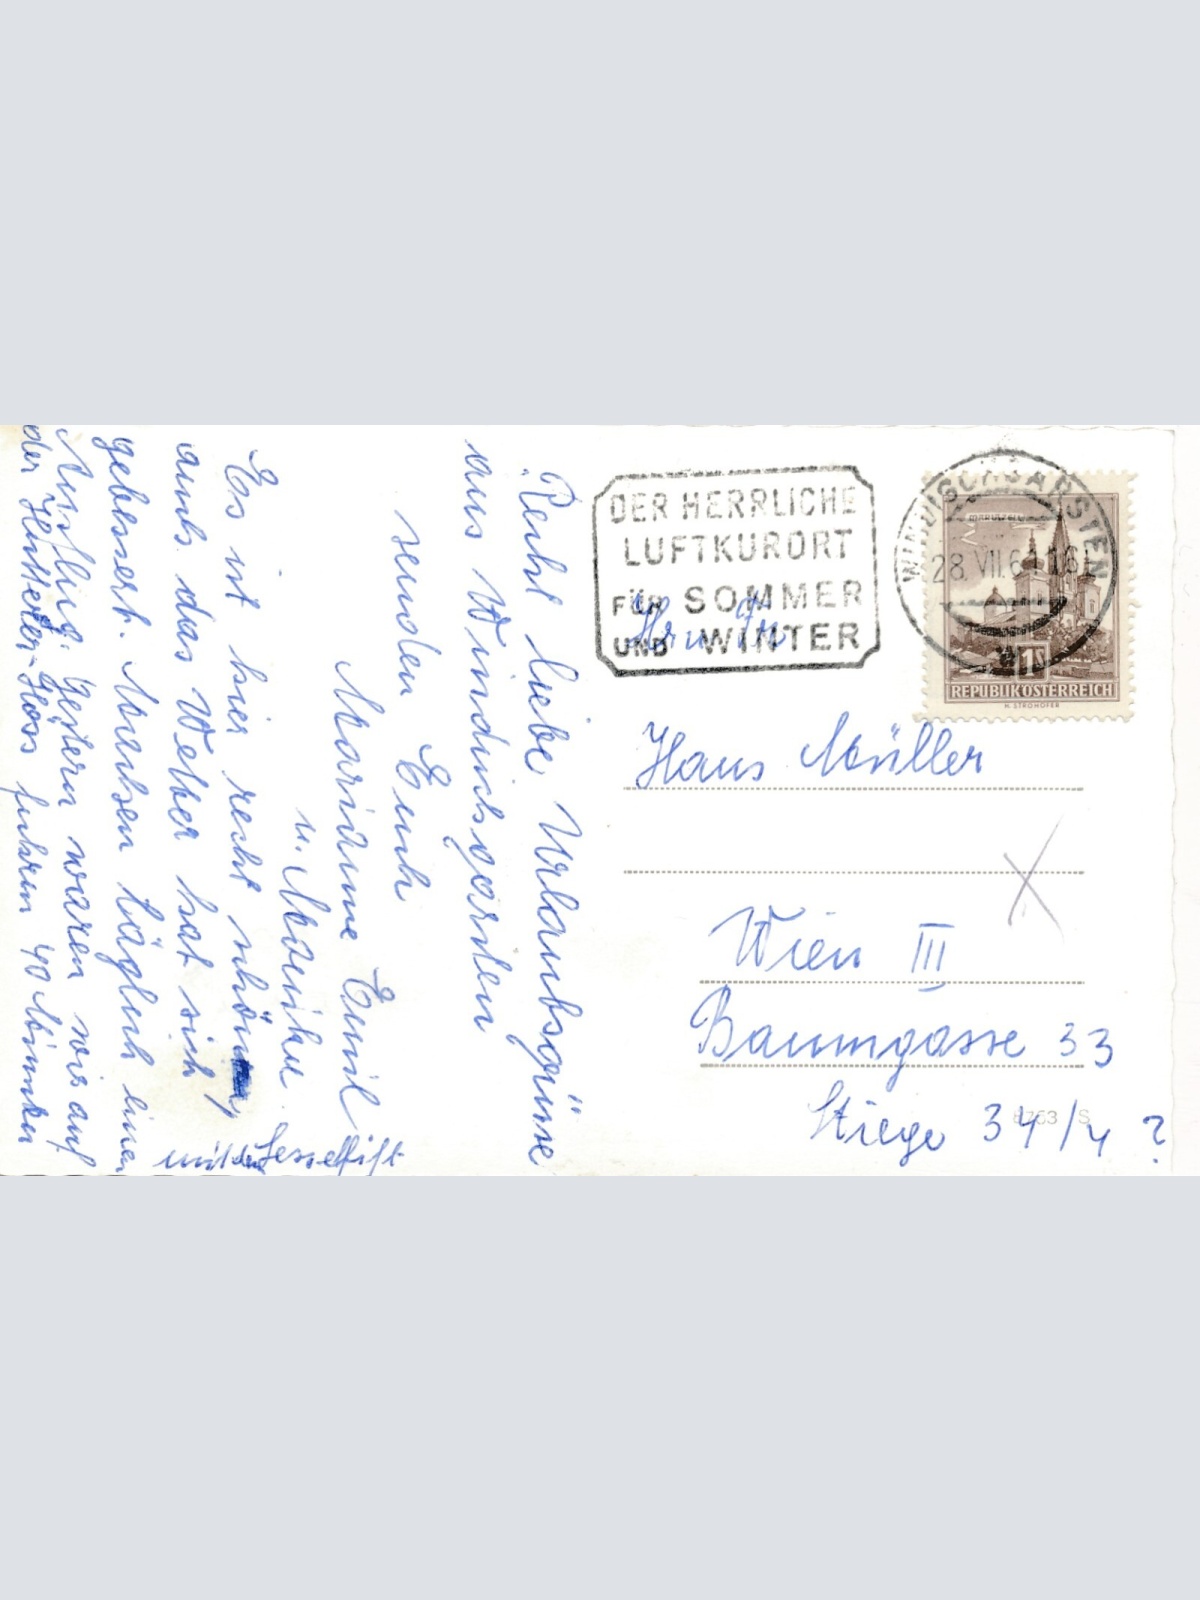 Recht liebe Urlaubsgrüsse
aus Windischgarsten
senden Euch
Marianne Emil
u. Monika
Es ist hier recht schön,
auch das Wetter hat sich
gebessert. Machen täglich einen
Ausflug. Gestern waren wir auf
der Hutterer-Höss fuhren 40 Minuten
mit dem Sessellift
DER HERRLICHE
LUFTKURORT
FÜR SOMMER
UND WINTER
WINDISCHGARSTEN
28. VII. 6
MARIAZELL
1S
REPUBLIK ÖSTERREICH
H. STROHOFER
Hans Müller
Wien III
Baumgasse 33
Stiege 34/4 ?
S